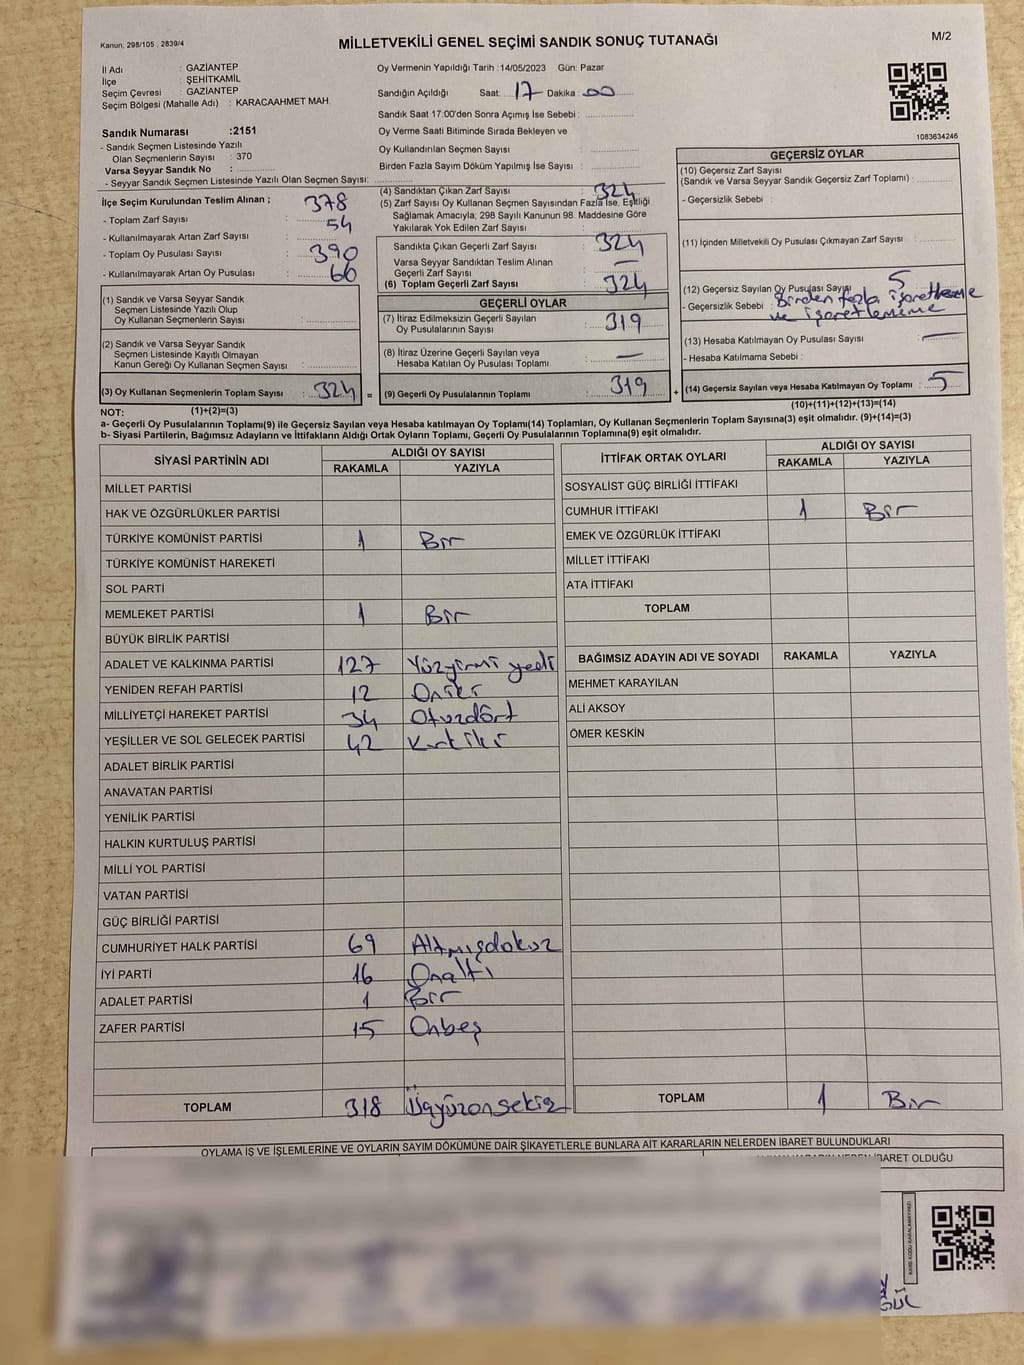 Kanun; 298/105 , 2839/4
MİLLETVEKİLİ GENEL SEÇİMİ SANDIK SONUÇ TUTANAĞI
M/2
İl Adı : GAZİANTEP
İlçe : ŞEHİTKAMİL
Seçim Çevresi : GAZİANTEP
Seçim Bölgesi (Mahalle Adı) : KARACAAHMET MAH.
Sandık Numarası :2151
- Sandık Seçmen Listesinde Yazılı
Olan Seçmenlerin Sayısı : 370
Varsa Seyyar Sandık No :
- Seyyar Sandık Seçmen Listesinde Yazılı Olan Seçmen Sayısı:
Oy Vermenin Yapıldığı Tarih :14/05/2023 Gün: Pazar
Sandığın Açıldığı Saat: 17 Dakika : 00
Sandık Saat 17:00'den Sonra Açımış İse Sebebi :
Oy Verme Saati Bitiminde Sırada Bekleyen ve
Oy Kullandırılan Seçmen Sayısı :
Birden Fazla Sayım Döküm Yapılmış İse Sayısı :
1083634246
İlçe Seçim Kurulundan Teslim Alınan ;
- Toplam Zarf Sayısı : 378
- Kullanılmayarak Artan Zarf Sayısı : 54
- Toplam Oy Pusulası Sayısı : 390
- Kullanılmayarak Artan Oy Pusulası : 66
(1) Sandık ve Varsa Seyyar Sandık
Seçmen Listesinde Yazılı Olup
Oy Kullanan Seçmenlerin Sayısı :
(2) Sandık ve Varsa Seyyar Sandık
Seçmen Listesinde Kayıtlı Olmayan
Kanun Gereği Oy Kullanan Seçmen Sayısı :
(3) Oy Kullanan Seçmenlerin Toplam Sayısı : 324 =
(4) Sandıktan Çıkan Zarf Sayısı : 324
(5) Zarf Sayısı Oy Kullanan Seçmen Sayısından Fazla İse, Eşitliği
Sağlamak Amacıyla; 298 Sayılı Kanunun 98. Maddesine Göre
Yakılarak Yok Edilen Zarf Sayısı :
Sandıkta Çıkan Geçerli Zarf Sayısı : 324
Varsa Seyyar Sandıktan Teslim Alınan
Geçerli Zarf Sayısı : —
(6) Toplam Geçerli Zarf Sayısı : 324
GEÇERLİ OYLAR
(7) İtiraz Edilmeksizin Geçerli Sayılan
Oy Pusulalarının Sayısı : 319
(8) İtiraz Üzerine Geçerli Sayılan veya
Hesaba Katılan Oy Pusulası Toplamı : —
(9) Geçerli Oy Pusulalarının Toplamı : 319 +
GEÇERSİZ OYLAR
(10) Geçersiz Zarf Sayısı
(Sandık ve Varsa Seyyar Sandık Geçersiz Zarf Toplamı) :
- Geçersizlik Sebebi :
(11) İçinden Milletvekili Oy Pusulası Çıkmayan Zarf Sayısı :
(12) Geçersiz Sayılan Oy Pusulası Sayısı : 5
- Geçersizlik Sebebi : Birden fazla işaretleme
ve işaretlememe
(13) Hesaba Katılmayan Oy Pusulası Sayısı : —
- Hesaba Katılmama Sebebi :
(14) Geçersiz Sayılan veya Hesaba Katılmayan Oy Toplamı : 5
NOT: (1)+(2)=(3)
(10)+(11)+(12)+(13)=(14)
a- Geçerli Oy Pusulalarının Toplamı(9) ile Geçersiz Sayılan veya Hesaba katılmayan Oy Toplamı(14) Toplamları, Oy Kullanan Seçmenlerin Toplam Sayısına(3) eşit olmalıdır. (9)+(14)=(3)
b- Siyasi Partilerin, Bağımsız Adayların ve İttifakların Aldığı Ortak Oyların Toplamı, Geçerli Oy Pusulalarının Toplamına(9) eşit olmalıdır.
SİYASİ PARTİNİN ADI ALDIĞI OY SAYISI
RAKAMLA YAZIYLA
MİLLET PARTİSİ
HAK VE ÖZGÜRLÜKLER PARTİSİ
TÜRKİYE KOMÜNİST PARTİSİ 1 Bir
TÜRKİYE KOMÜNİST HAREKETİ
SOL PARTİ
MEMLEKET PARTİSİ 1 Bir
BÜYÜK BİRLİK PARTİSİ
ADALET VE KALKINMA PARTİSİ 127 Yüzyirmi yedi
YENİDEN REFAH PARTİSİ 12 Oniki
MİLLİYETÇİ HAREKET PARTİSİ 34 Otuzdört
YEŞİLLER VE SOL GELECEK PARTİSİ 42 Kırkiki
ADALET BİRLİK PARTİSİ
ANAVATAN PARTİSİ
YENİLİK PARTİSİ
HALKIN KURTULUŞ PARTİSİ
MİLLİ YOL PARTİSİ
VATAN PARTİSİ
GÜÇ BİRLİĞİ PARTİSİ
CUMHURİYET HALK PARTİSİ 69 Altmışdokuz
İYİ PARTİ 16 Onaltı
ADALET PARTİSİ 1 Bir
ZAFER PARTİSİ 15 Onbeş
TOPLAM 318 Üçyüzonsekiz
İTTİFAK ORTAK OYLARI ALDIĞI OY SAYISI
RAKAMLA YAZIYLA
SOSYALİST GÜÇ BİRLİĞİ İTTİFAKI
CUMHUR İTTİFAKI 1 Bir
EMEK VE ÖZGÜRLÜK İTTİFAKI
MİLLET İTTİFAKI
ATA İTTİFAKI
TOPLAM
BAĞIMSIZ ADAYIN ADI VE SOYADI RAKAMLA YAZIYLA
MEHMET KARAYILAN
ALİ AKSOY
ÖMER KESKİN
TOPLAM 1 Bir
OYLAMA İŞ VE İŞLEMLERİNE VE OYLARIN SAYIM DÖKÜMÜNE DAİR ŞİKAYETLERLE BUNLARA AİT KARARLARIN NELERDEN İBARET BULUNDUKLARI
OLDUĞU